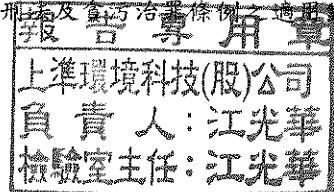 刑法及貪污治罪條例之適用
報告專用章
上準環境科技(股)公司
負責人:江光華
檢驗室主任:江光華